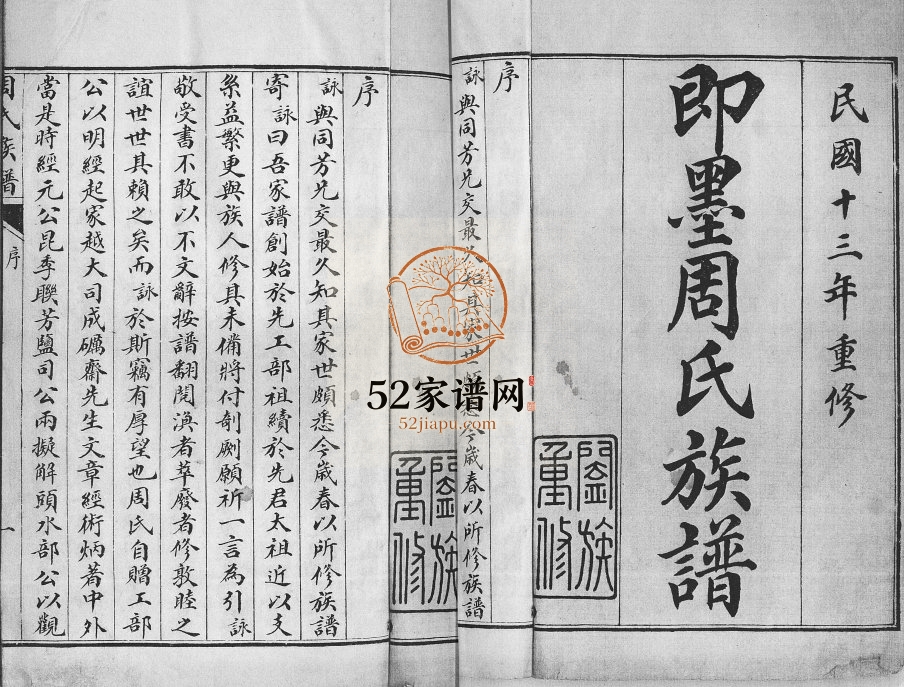 民國十三年重修
即墨周氏族譜
闔族重修
序
詠與同芳兄交最久知其家世頗悉今歲春以所修族譜
闔族重修
序
詠與同芳兄交最久知其家世頗悉今歲春以所修族譜
寄詠曰吾家譜創始於先工部祖續於先君太祖近以支
系益繁更與族人修其未備將付剞劂願祈一言為引詠
敬受書不敢以不文辭按譜翻閱渙者萃廢者修敦睦之
誼世世其賴之矣而詠於斯竊有厚望也周氏自贈工部
公以明經起家越大司成礪齋先生文章經術炳著中外
當是時經元公昆季聯芳鹽司公兩擬解頭水部公以觀
周氏族譜
序
一
52家谱网
52jiapu.com